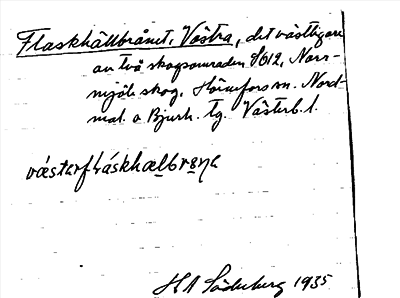 Flaskhällbrånet, Västra, det västligare
av två skogsområden S612, Norr-
mjöle skog, Hörnefors sn. Nord-
mal. o Bjurh. tg. Västerb. l.
H A Söderberg 1935